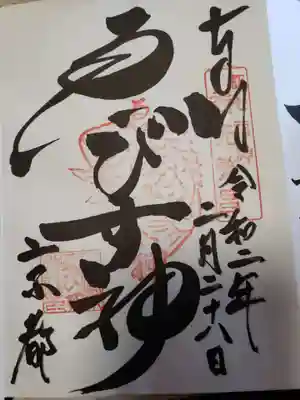 奉拝 令和二年
二月二十八日
ゑびす神
京都